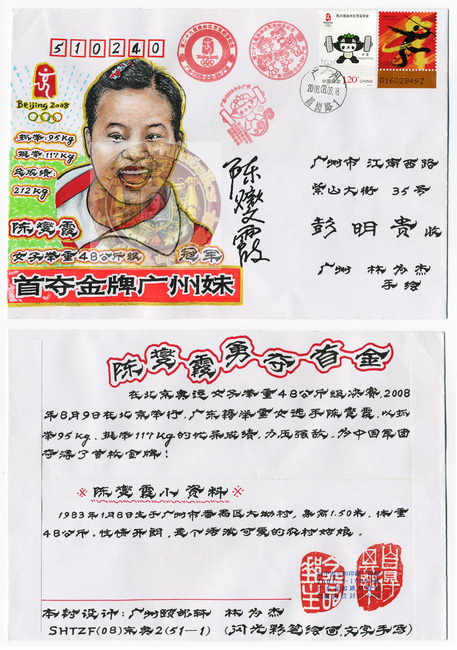 510240
Beijing 2008
抓举:95Kg
挺举:117Kg
总成绩
212Kg
陈燮霞
女子举重48公斤级 冠军
首夺金牌广州妹
陈燮霞
1.20元
CHINA
中国邮政
广州
2008.08.09.18
广州市 江南西路
紫山大街 35号
彭明贵 收
广州 林为杰
手绘
陈燮霞勇夺首金
在北京奥运女子举重48公斤级决赛,2008
年8月9日在北京举行,广东籍举重女选手陈燮霞,以抓
举95Kg、挺举117Kg的优异成绩,力压强敌,为中国军团
夺得了首枚金牌!
※陈燮霞小资料※
1983年1月8日生于广州市番禺区大坳村,身高1.50米,体重
48公斤。性情开朗,是个活泼可爱的农村姑娘。
本封设计:广州颐邮轩 林为杰
SHTZF(08)京奥2(51-1) (闪光彩笔绘画,文字手写)